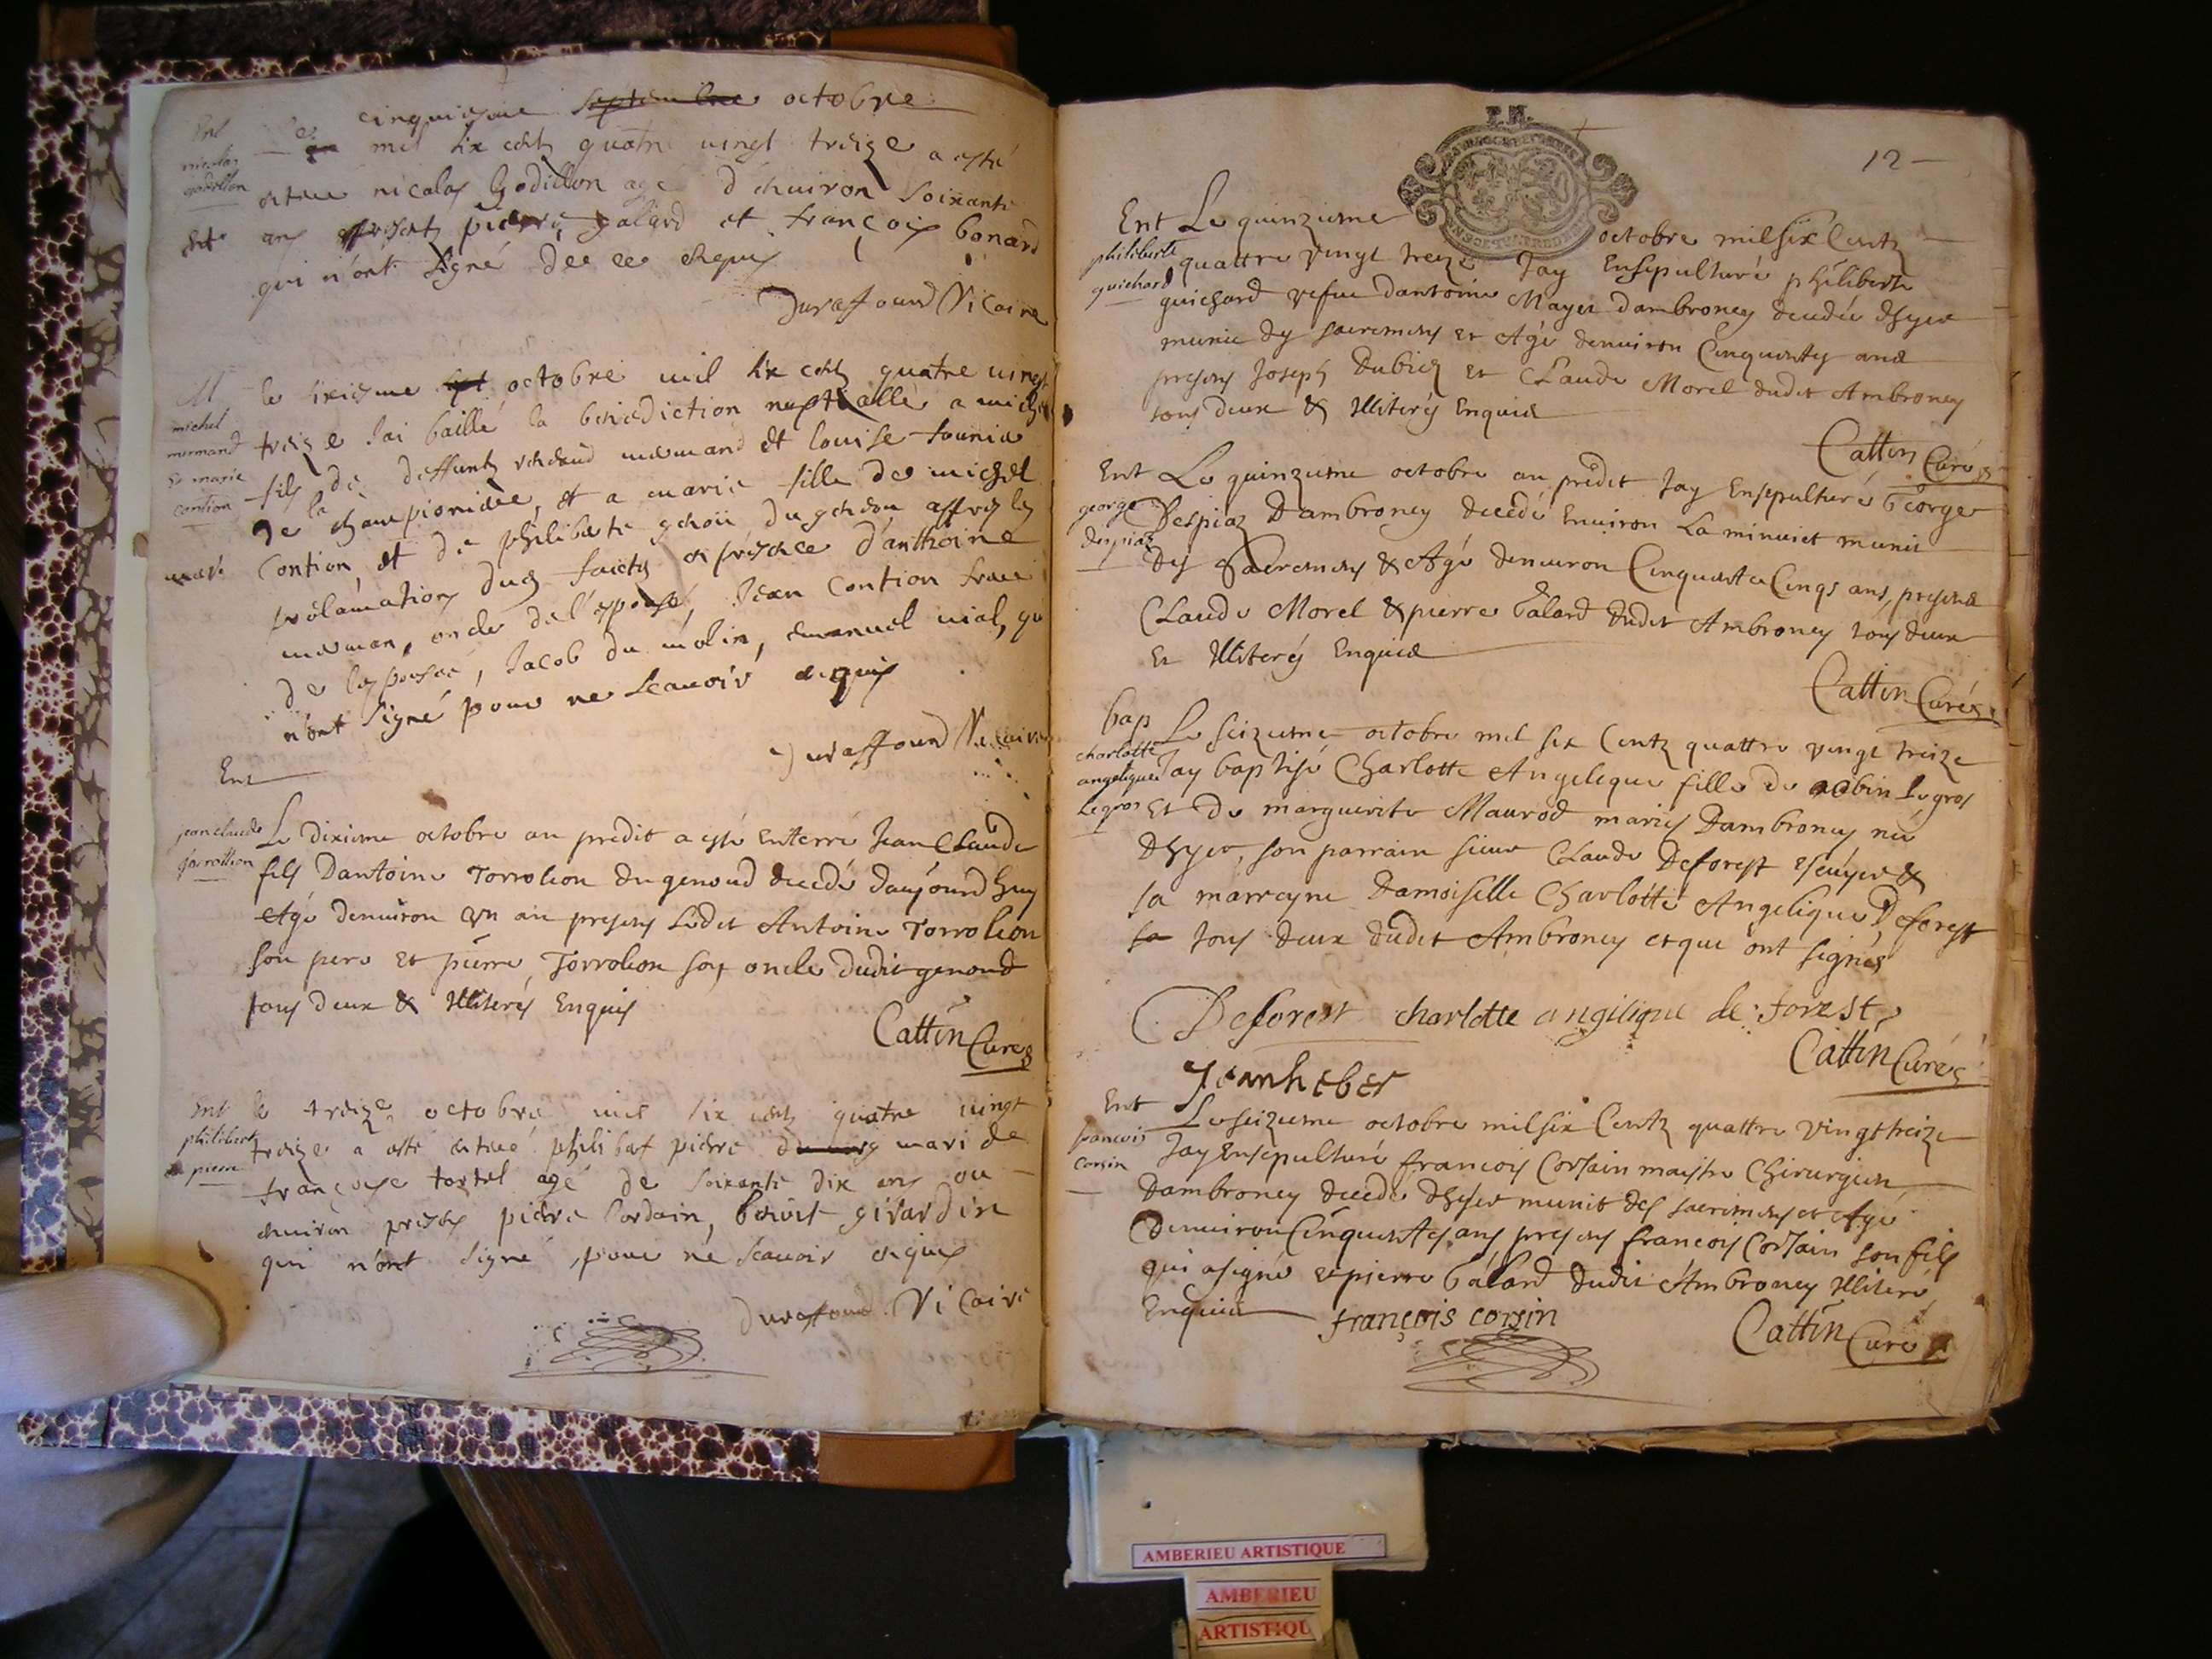 cinquiesme septembre octobre
Ent le mil six cents quatre vingt treize a esté
nicolas
godillon
enterre nicolas Godillon agé d'environ soixante
et ans presents pierre galard et françois bonard
qui n'ont signé de ce requis
Duraffourd Vicaire
M le sixiesme octobre mil six cents quatre vingt
michel
mermand
et marie
contion
treize j'ai baillé la benediction nuptialle a michel
fils de deffunts mermand et louise
de la championiere, et a marie fille de michel
Contion et de philiberte du apres les
proclamations dues faictes en presence d'anthoine
merman, oncle de l'espoux, Jean Contion frere
de lesposee, Jacob du molin, emanuel vial, qui
n'ont signé pour ne scavoir enquis
Duraffourd Vicaire
Ent
jean claude
torrollion
Le dixieme octobre an predit a esté enterré Jean Claude
fils Dantoine Torrolion du genoud decedé daujourdhuy
Agé denuiron vn an presens Ledit Antoine Torrolion
son pere et pierre Torrolion son oncle dudit genoud
tous deux & Illiterés Enquis
Cattin Curé
Ent le treize octobre mil six cents quatre vingt
philibert
pierre
treize a esté enterré philibert pierre mari de
françoise tortel agé de soixante dix ans ou
environ presents pierre Cordain, benoit girardin
qui n'ont signé, pour ne scavoir enquis
Duraffourd Vicaire
12
Ent Le quinzieme octobre mil six Centz
philiberte
guichard
quattre vingt treize Jay Ensepulturé philiberte
guichard vefue dantoine Mayet dambroney decedée dhyer
munie des sacremens et Agée denuiron Cinquantes ans
presens Joseph Dubiez et Claude Morel dudit Ambroney
tous deux & Illiterés Enquis
Cattin Curé
Ent Le quinzieme octobre an predit Jay Ensepulturé George
george
despiaz
Despiaz Dambroney decedé Enuiron La minuict munit
des Sacremens & Agé denuiron Cinquante Cinqs ans, presens
Claude Morel & pierre Galard dudit Ambroney tous deux
Et Illiterés Enquis
Cattin Curé
bap Le seizieme octobre mil six Centz quattre vingt treize
charlotte
angelique
Legros
Jay baptisé Charlotte Angelique fille de Legros
Et de marguerite Maurod mariés Dambroney née
dhyer, son parrain sieur Claude Deforest escuyer &
sa marreyne Damoiselle Charlotte Angelique Deforest
sa tous deux dudit Ambroney et qui ont signés
Deforest charlotte angilique de forest
Cattin Curé
Jeanheber
Ent Le seizieme octobre mil six Centz quattre vingt treize
francois
corsin
Jay Ensepulturé francois Corsain maistre Chirurgien
Dambroney decedé dhyer munit des sacremens et Agé
denuiron Cinquantes ans, presens francois Corsain son fils
qui a signé et pierre Galard dudit Ambroney Illiteré
Enquis
françois corsin
Cattin Curé
AMBERIEU ARTISTIQUE
AMBERIEU
ARTISTIQU